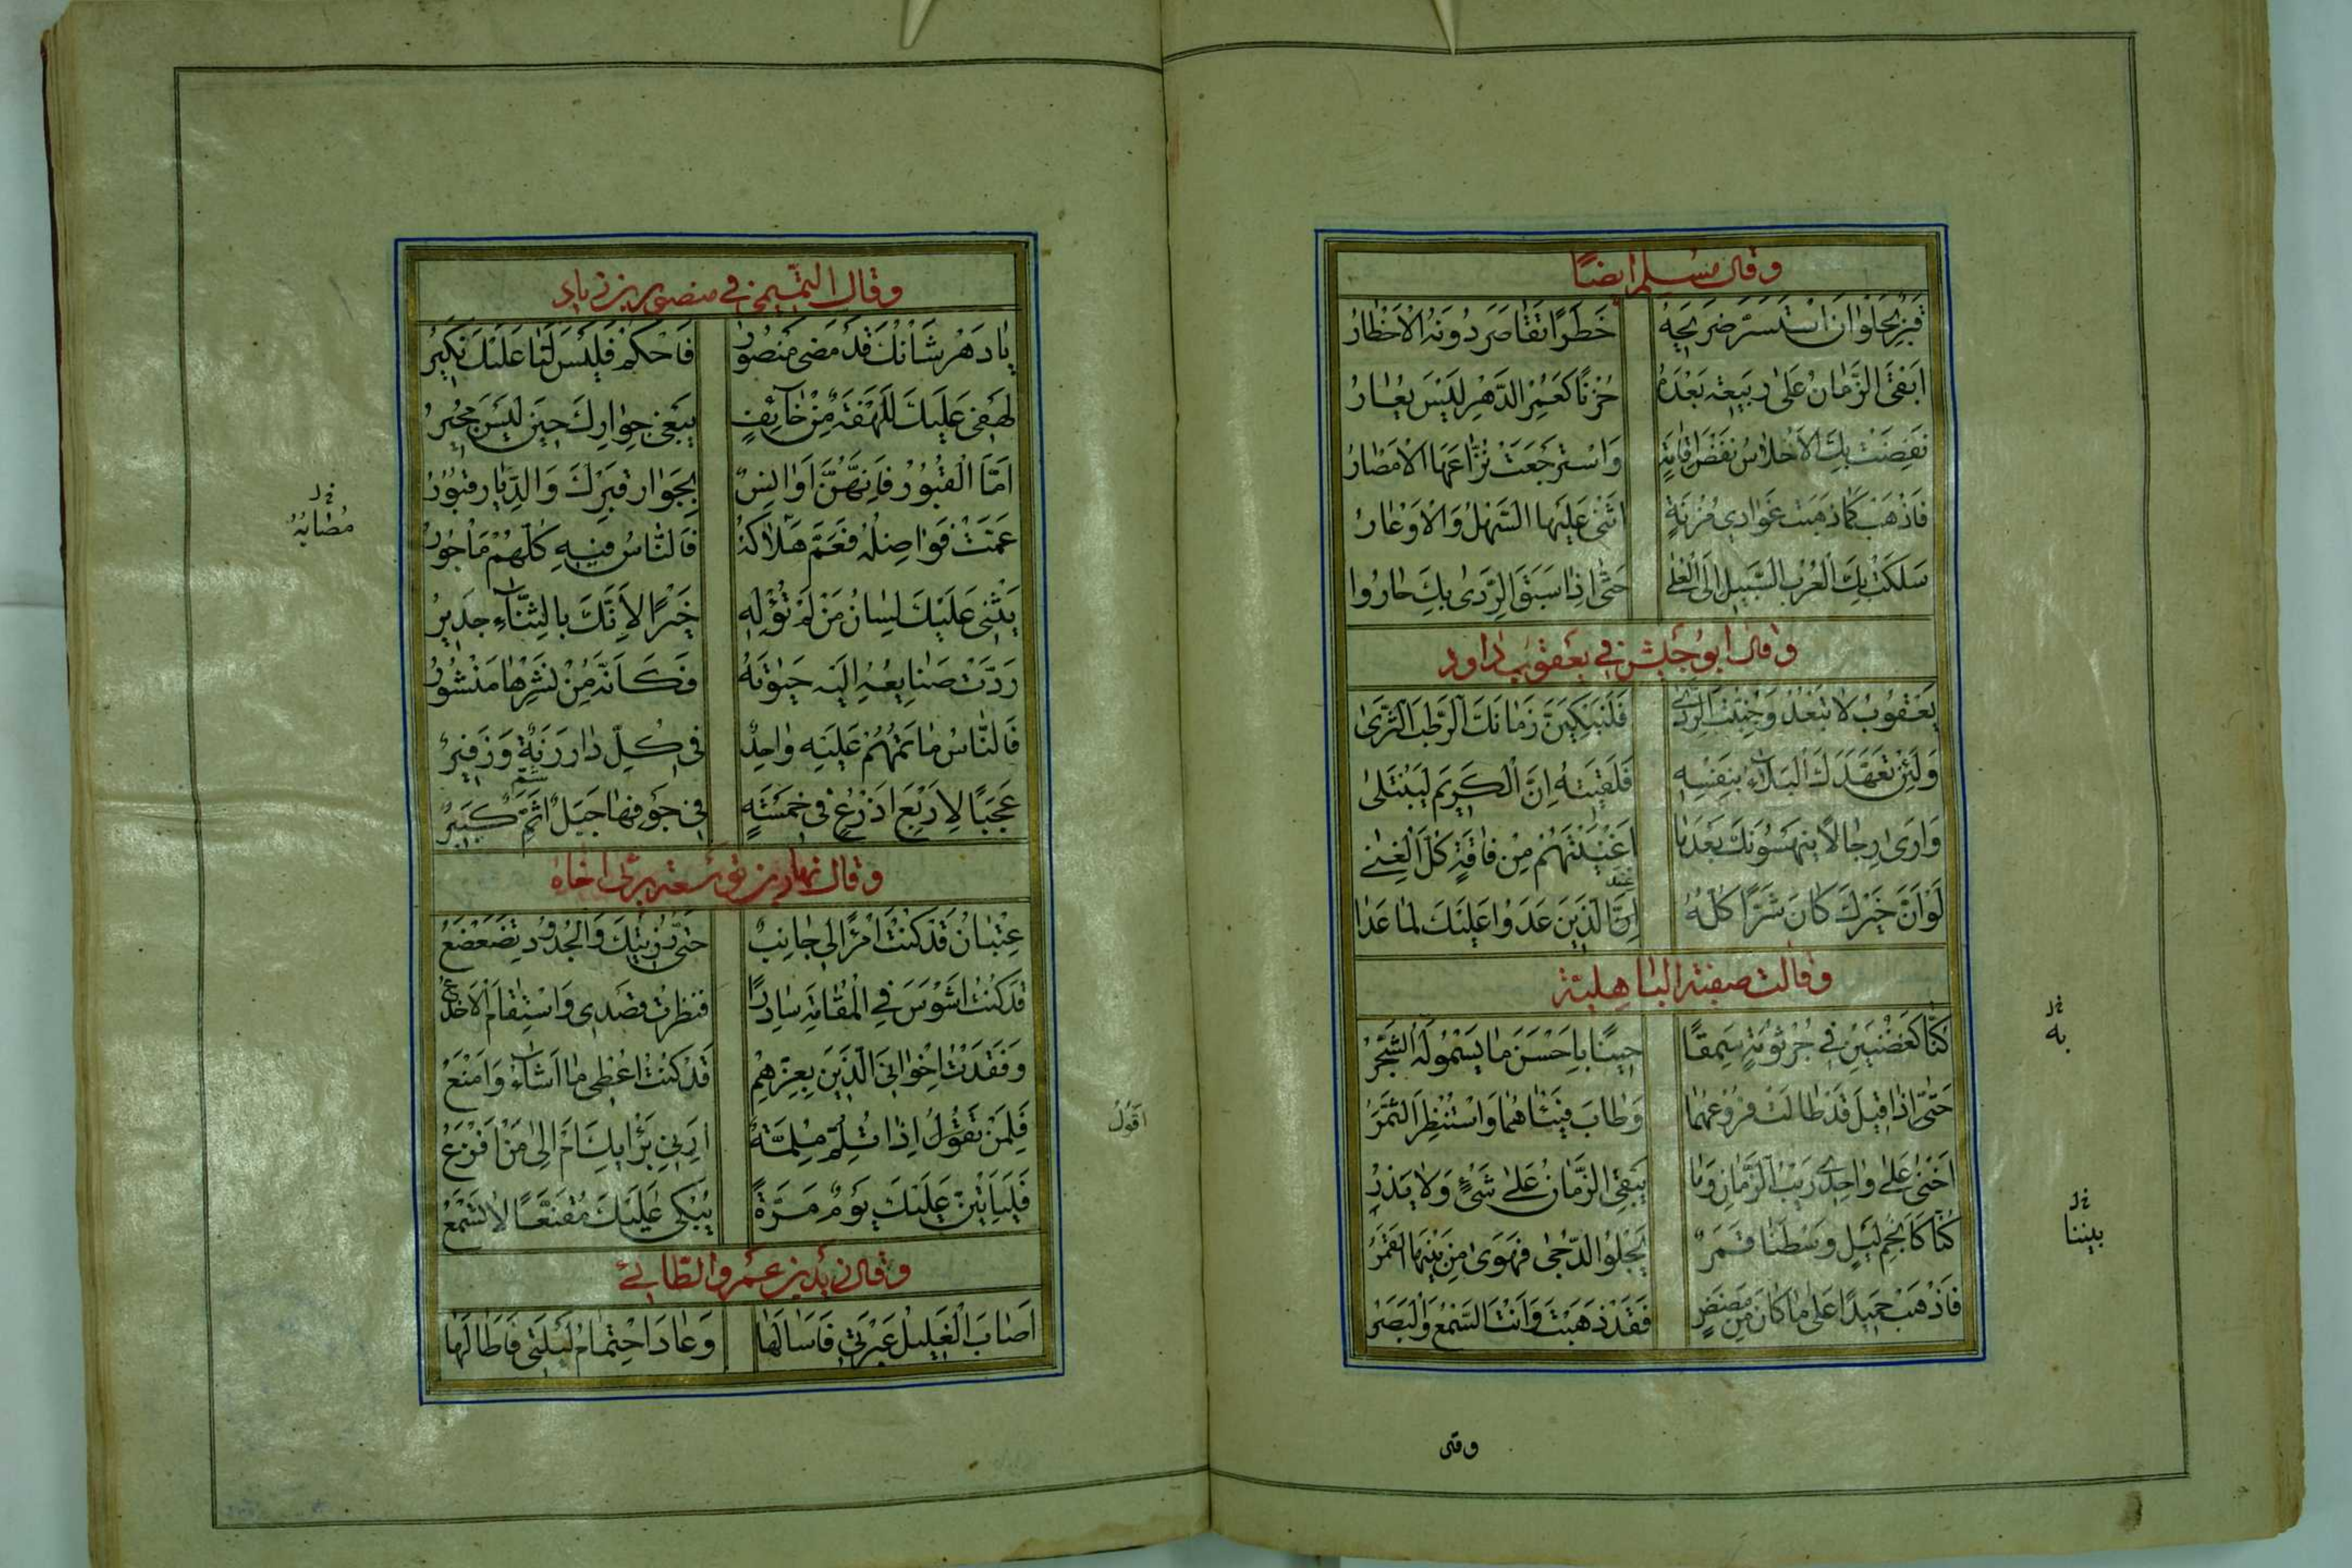 وقال مسلم ايضًا
قَبْرٌ بِحُلْوَانَ اسْتَسَرَّ ضَرِيحُهُ خَطَرًا تَقَاصَرَ دُونَهُ الْاَخْطَارُ
اَبْقَى الزَّمَانُ عَلَى رَبِيعَة بَعْدَهُ حُزْنًا كَعُمْرِ الدَّهْرِ لَيْسَ يُعَارُ
نَفَضَتْ بِكَ الْاَحْلَاسُ نَفْضَ اِقَامَةٍ وَاسْتَرْجَعَتْ نُزَّاعَهَا الْاَمْصَارُ
فَاذْهَبْ كَمَا ذَهَبَتْ غَوَادِي مُزْنَةٍ اَثْنَى عَلَيْهَا السَّهْلُ وَالْاَوْعَارُ
سَلَكَتْ بِكَ الْعُرْبُ السَّبِيلَ اِلَى الْعُلَى حَتَّى اِذَا سَبَقَ الرَّدَى بِكَ حَارُوا
وقال ابو حبش في يعقوب داود
يَعْقُوبُ لَا تَبْعَدْ وَجُنِّبْتَ الرَّدَى فَلَنَبْكِيَنَّ زَمَانَكَ الرَّطْبَ الثَّرَى
وَلَئِنْ تَعَهَّدَكَ الْبَلَاءُ بِنَفْسِهِ فَلَقِيتَهُ اِنَّ الْكَرِيمَ لَيُبْتَلَى
وَاَرَى رِجَالًا يَنْهَسُونَكَ بَعْدَمَا اَغْنَيْتَهُمْ مِنْ فَاقَةٍ كُلَّ الْغِنَى
لَوْ اَنَّ خَيْرَكَ كَانَ شَرًّا كُلُّهُ عِنْدَ الَّذِينَ عَدَوْا عَلَيْكَ لَمَا عَدَا
وقالت صفية الباهلية
كُنَّا كَغُصْنَيْنِ فِي جُرْثُومَةٍ سَمَقَا حِينًا بِاَحْسَنِ مَا يَسْمُو لَهُ الشَّجَرُ
حَتَّى اِذَا قِيلَ قَدْ طَالَتْ فُرُوعُهُمَا وَطَابَ فَيْئَاهُمَا وَاسْتُنْظِرَ الثَّمَرُ
اَخْنَى عَلَى وَاحِدِي رَيْبُ الزَّمَانِ وَمَا يُبْقِي الزَّمَانُ عَلَى شَيْءٍ وَلَا يَذَرُ
كُنَّا كَاَنْجُمِ لَيْلٍ وَسْطَنَا قَمَرٌ يَجْلُو الدُّجَى فَهَوَى مِنْ بَيْنِهَا الْقَمَرُ
فَاذْهَبْ حَمِيدًا عَلَى مَا كَانَ مِنْ مَضَضٍ فَقَدْ ذَهَبْتَ وَاَنْتَ السَّمْعُ وَالْبَصَرُ
به
بيننا
وقال التميمي في منصور بن زياد
يَا دَهْرُ شَانُكَ قَدْ مَضَى مَنْصُورُ فَاحْكُمْ فَلَيْسَ لَنَا عَلَيْكَ نَكِيرُ
لَهْفِي عَلَيْكَ لِلَهْفَةٍ مِنْ خَائِفٍ يَبْغِي جِوَارَكَ حِينَ لَيْسَ مُجِيرُ
اَمَّا الْقُبُورُ فَاِنَّهُنَّ اَوَانِسٌ بِجِوَارِ قَبْرِكَ وَالدِّيَارُ قُبُورُ
عَمَّتْ فَوَاضِلُهُ فَعَمَّ هَلَاكُهُ فَالنَّاسُ فِيهِ كُلُّهُمْ مَاْجُورُ
يُثْنِي عَلَيْكَ لِسَانُ مَنْ لَمْ تُولِهِ خَيْرًا لِاَنَّكَ بِالثَّنَاءِ جَدِيرُ
رَدَّتْ صَنَايِعُهُ اِلَيْهِ حَيَوتَهُ فَكَاَنَّهُ مِنْ نَشْرِهَا مَنْشُورُ
فَالنَّاسُ مَاْتَمُهُمْ عَلَيْهِ وَاحِدٌ فِي كُلِّ دَارٍ رَنَّةٌ وَزَفِيرُ
عَجَبًا لِاَرْبَعِ اَذْرُعٍ فِي خَمْسَةٍ فِي جَوْفِهَا جَبَلٌ اَشَمُّ كَبِيرُ
مُصَابُهُ
وقال نهار بن توسعة يرثى اخاه
عِتْبَانُ قَدْ كُنْتَ امْرَأً لِي جَانِبٌ حَتَّى رُزِئْتُكَ وَالْجُدُودُ تَضَعْضَعُ
قَدْ كُنْتُ اَشْوَسَ فِي الْمَقَامَةِ سَادِرًا فَنَظَرْتُ قَصْدِي وَاسْتَقَامَ الْاَخْدَعُ
وَفَقَدْتُ اِخْوَانِيَ الَّذِينَ بِعِزِّهِمْ قَدْ كُنْتُ اُعْطِي مَا اَشَاءُ وَاَمْنَعُ
فَلِمَنْ نَقُولُ اِذَا تُلِمُّ مُلِمَّةٌ اَرِنِي بِرَايِكَ اَمْ اِلَى مَنْ اَفْزَعُ
فَلَيَاْتِيَنَّ عَلَيْكَ يَوْمٌ مَرَّةً يُبْكَى عَلَيْكَ مُقَنَّعًا لَا تَسْمَعُ
اَقُولُ
وقال زيد بن عمرو الطائي
اَصَابَ الْغَلِيلُ عَبْرَتِي فَاَسَالَهَا وَعَادَ احْتِمَامُ لَيْلَتِي فَاَطَالَهَا